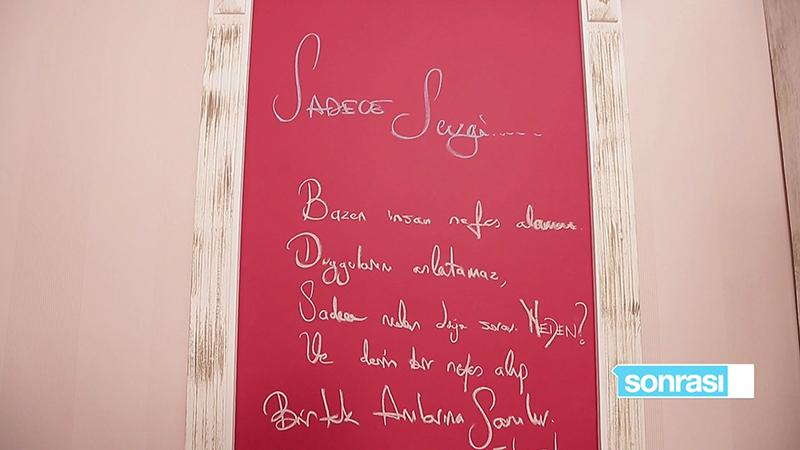 SADECE Sevgi.....
Bazen insan nefes alamaz.
Duygularını anlatamaz,
Sadece neden diye sorar. NEDEN?
Ve derin bir nefes alıp
Bir tek Anılarına Sarılır.
sonrası